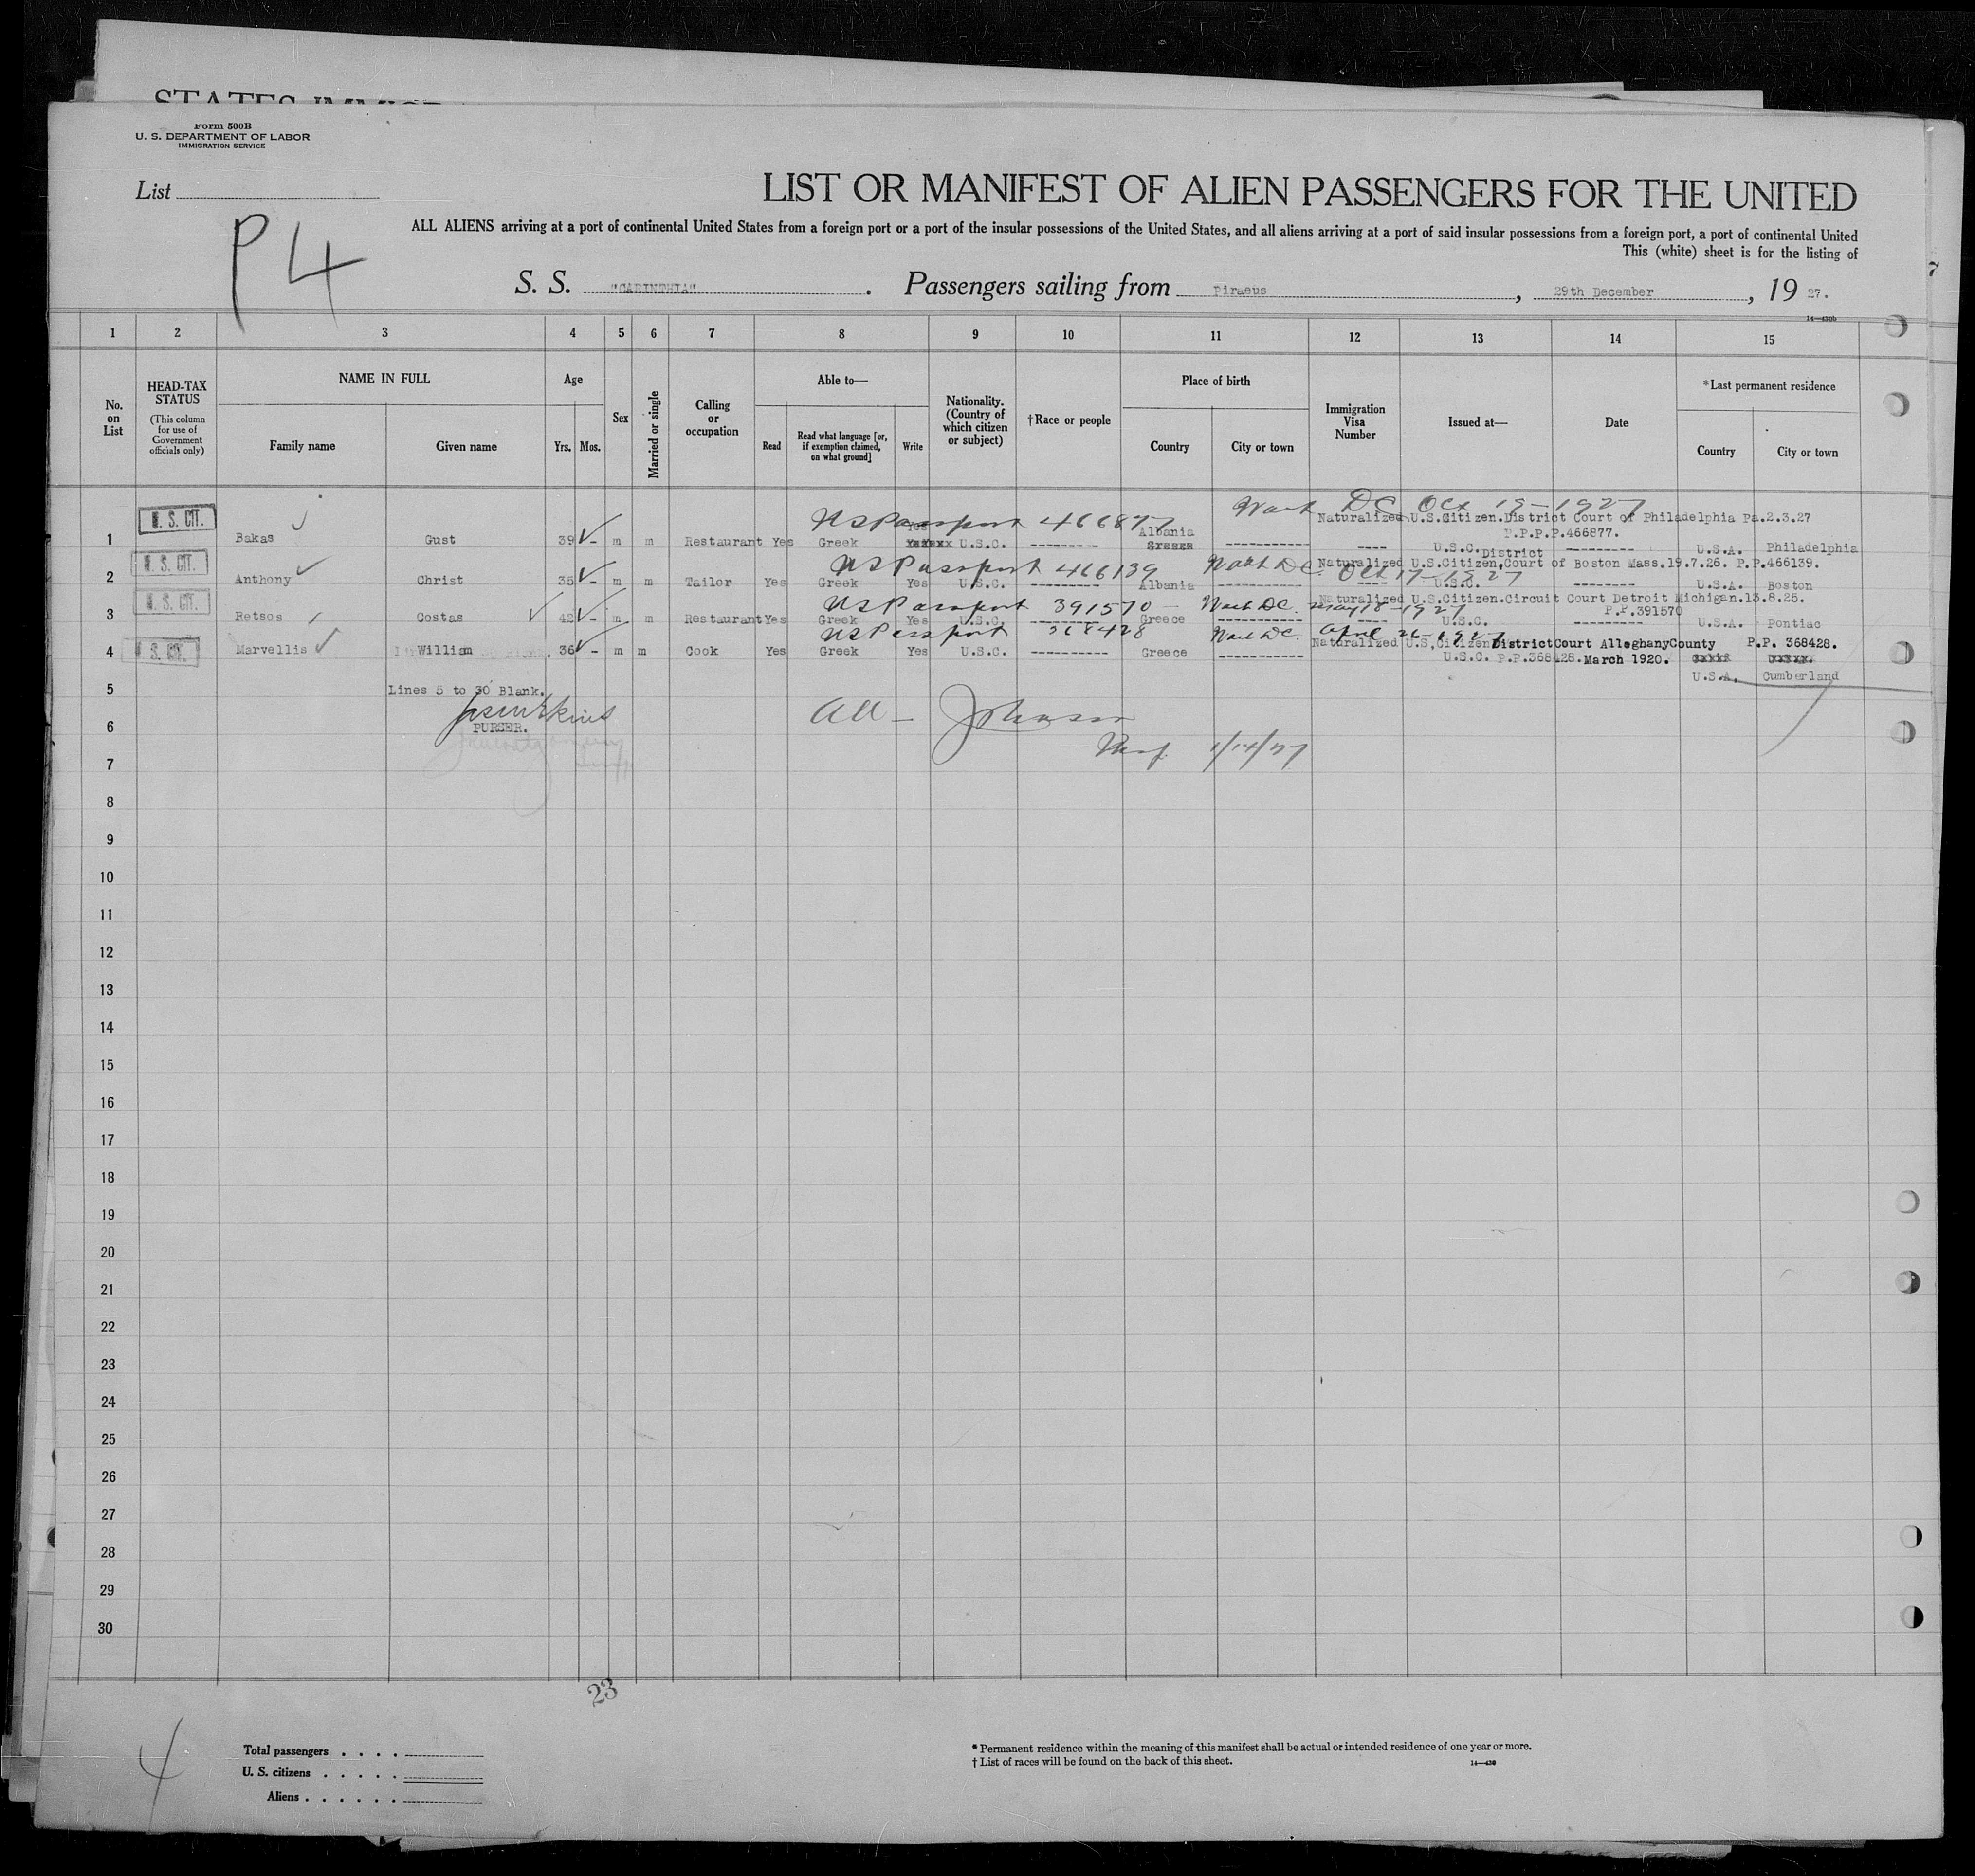 Form 500B
U. S. DEPARTMENT OF LABOR
IMMIGRATION SERVICE
List
P 4
LIST OR MANIFEST OF ALIEN PASSENGERS FOR THE UNITED
ALL ALIENS arriving at a port of continental United States from a foreign port or a port of the insular possessions of the United States, and all aliens arriving at a port of said insular possessions from a foreign port, a port of continental United
This (white) sheet is for the listing of
S. S. "CARINTHIA". Passengers sailing from Piraeus, 29th December, 19 27.
14—430b
1 2 3 4 5 6 7 8 9 10 11 12 13 14 15
No. on List
HEAD-TAX STATUS (This column for use of Government officials only)
NAME IN FULL Family name Given name
Age Yrs. Mos.
Sex
Married or single
Calling or occupation
Able to— Read Read what language [or, if exemption claimed, on what ground] Write
Nationality. (Country of which citizen or subject)
†Race or people
Place of birth Country City or town
Immigration Visa Number
Issued at—
Date
*Last permanent residence Country City or town
US Passport 466877 Wash DC Oct 19-1927
Naturalized U.S.Citizen.District Court of Philadelphia Pa.2.3.27
P.P.P.P.466877.
1 U. S. CIT. Bakas Gust 39 - m m Restaurant Yes Greek Yes U.S.C. --------- Albania Greece ----------- ---- U.S.C. --------- U.S.A. Philadelphia
US Passport 466139 Wash DC Oct 17-1927
District
Naturalized U.S.Citizen,Court of Boston Mass.19.7.26. P.P.466139.
2 U. S. CIT. Anthony Christ 35 - m m Tailor Yes Greek Yes U.S.C. --------- Albania ----------- ---- U.S.C. -------- U.S.A. Boston
US Passport 391570 - Wash DC. May 18-1927
Naturalized U.S.Citizen.Circuit Court Detroit Michigan.13.8.25.
P.P.391570
3 U. S. CIT. Retsos Costas 42 - m m Restaurant Yes Greek Yes U.S.C. --------- Greece ----------- ---- U.S.C. --------- U.S.A. Pontiac
US Passport 368428 Wash DC. April 26-1927
Naturalized U.S,Citizen DistrictCourt AlleghanyCounty P.P. 368428.
4 S. CIT. Marvellis William 36 - m m Cook Yes Greek Yes U.S.C. ---------- Greece ----------- U.S.C. P.P.368428. March 1920.
U.S.A. Cumberland
5 Lines 5 to 30 Blank.
6 PURSER. All - Johnson
1/14/27
7
8
9
10
11
12
13
14
15
16
17
18
19
20
21
22
23
24
25
26
27
28
29
30
23
4
Total passengers . . . .
U. S. citizens . . . . .
Aliens . . . . . .
* Permanent residence within the meaning of this manifest shall be actual or intended residence of one year or more.
† List of races will be found on the back of this sheet.
14—430